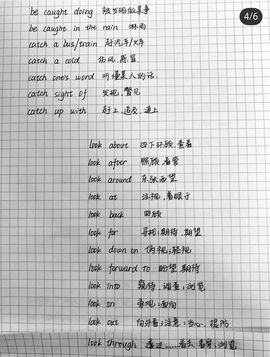 4/6
be caught doing 被发现做某事
be caught in the rain 淋雨
catch a bus/train 赶汽车/火车
catch a cold 伤风,感冒
catch one's word 听懂某人的话
catch sight of 发现,瞥见
catch up with 赶上,追上
look about 四下环顾,查看
look after 照顾,看管
look around 东张西望
look at 注视,着眼于
look back 回顾
look for 寻找,期待,期望
look down on 俯视;轻视
look forward to 盼望,期待
look into 窥视,调查;浏览
look on 旁观;面向
look out 向外看;注意;当心,提防
look through 透过……看去,看穿;浏览